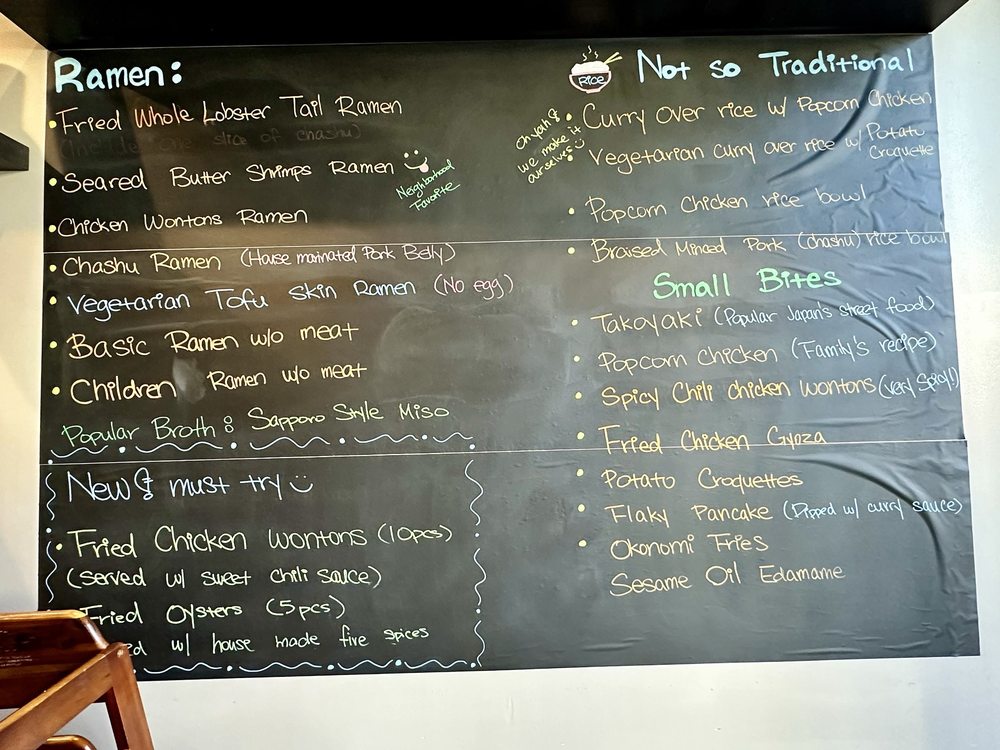 Ramen:
• Fried Whole Lobster Tail Ramen
slice of chashu)
• Seared Butter Shrimps Ramen
Neighborhood
Favorite
• Chicken Wontons Ramen
• Chashu Ramen (House marinated Pork Belly)
• Vegetarian Tofu Skin Ramen (No egg)
• Basic Ramen w/o meat
• Children Ramen w/o meat
Popular Broth: Sapporo Style Miso
New & must try
• Fried Chicken Wontons (10pcs)
(served w/ sweet chili sauce)
Fried Oysters (5pcs)
w/ house made five spices
RICE
Not so Traditional
Oh yah!
we make it
ourselves
• Curry over rice w/ Popcorn Chicken
• Vegetarian curry over rice w/ Potato
Croquette
• Popcorn Chicken rice bowl
• Braised Minced Pork (chashu) rice bowl
Small Bites
• Takoyaki (Popular Japan's street food)
• Popcorn Chicken (Family's recipe)
• Spicy Chili Chicken Wontons (very spicy!)
• Fried Chicken Gyoza
• Potato Croquettes
• Flaky Pancake (Dipped w/ curry sauce)
• Okonomi Fries
Sesame Oil Edamame